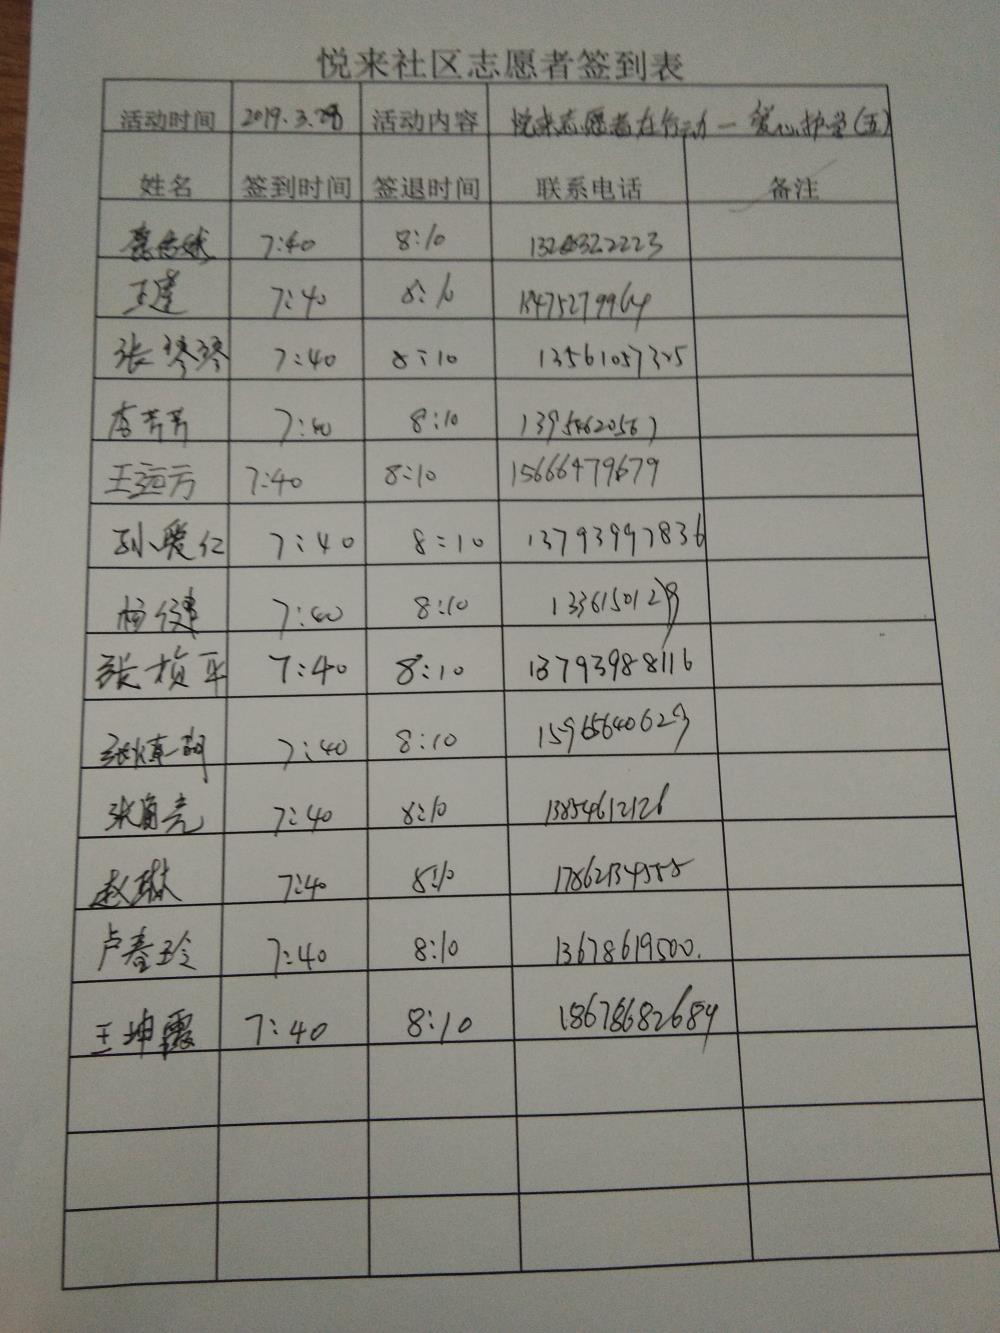 悦来社区志愿者签到表
活动时间 2019.3.28 活动内容 悦来志愿者在行动一爱心护学(五)
姓名 签到时间 签退时间 联系电话 备注
7:40 8:10
王建 7:40 8:10 18475279964
张琴琴 7:40 8:10 13561057325
李芳芳 7:40 8:10 13954620567
王运方 7:40 8:10 15666479679
孙爱仁 7:40 8:10 13793997836
杨健 7:40 8:10
张桢平 7:40 8:10 13793988116
7:40 8:10 15965640629
7:40 8:10 13854612126
赵琳 7:40 8:10
卢春玲 7:40 8:10 13678619500.
王坤霞 7:40 8:10 18678682684